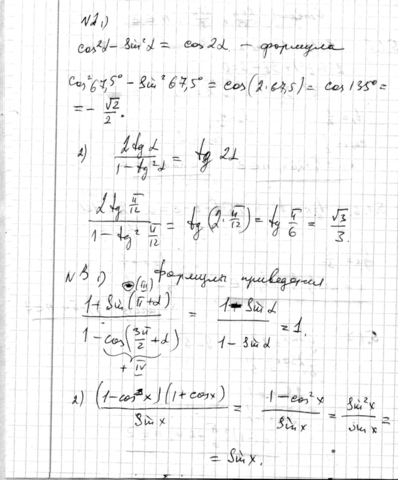 №2 1)
cos²α - sin²α = cos 2α - формула
cos²67,5° - sin²67,5° = cos(2·67,5) = cos 135° =
= - √2/2.
2) 2tg α / (1 - tg²α) = tg 2α
2tg π/12 / (1 - tg² π/12) = tg(2·π/12) = tg π/6 = √3/3.
№3 1) формулы приведения
(III)
1 + sin(π+α) / (1 - cos(3π/2 + α)) = 1 - sin α / (1 - sin α) = 1.
+ IV
2) (1-cos x)(1+cosx) / sin x = 1 - cos²x / sin x = sin²x / sin x =
= sin x.